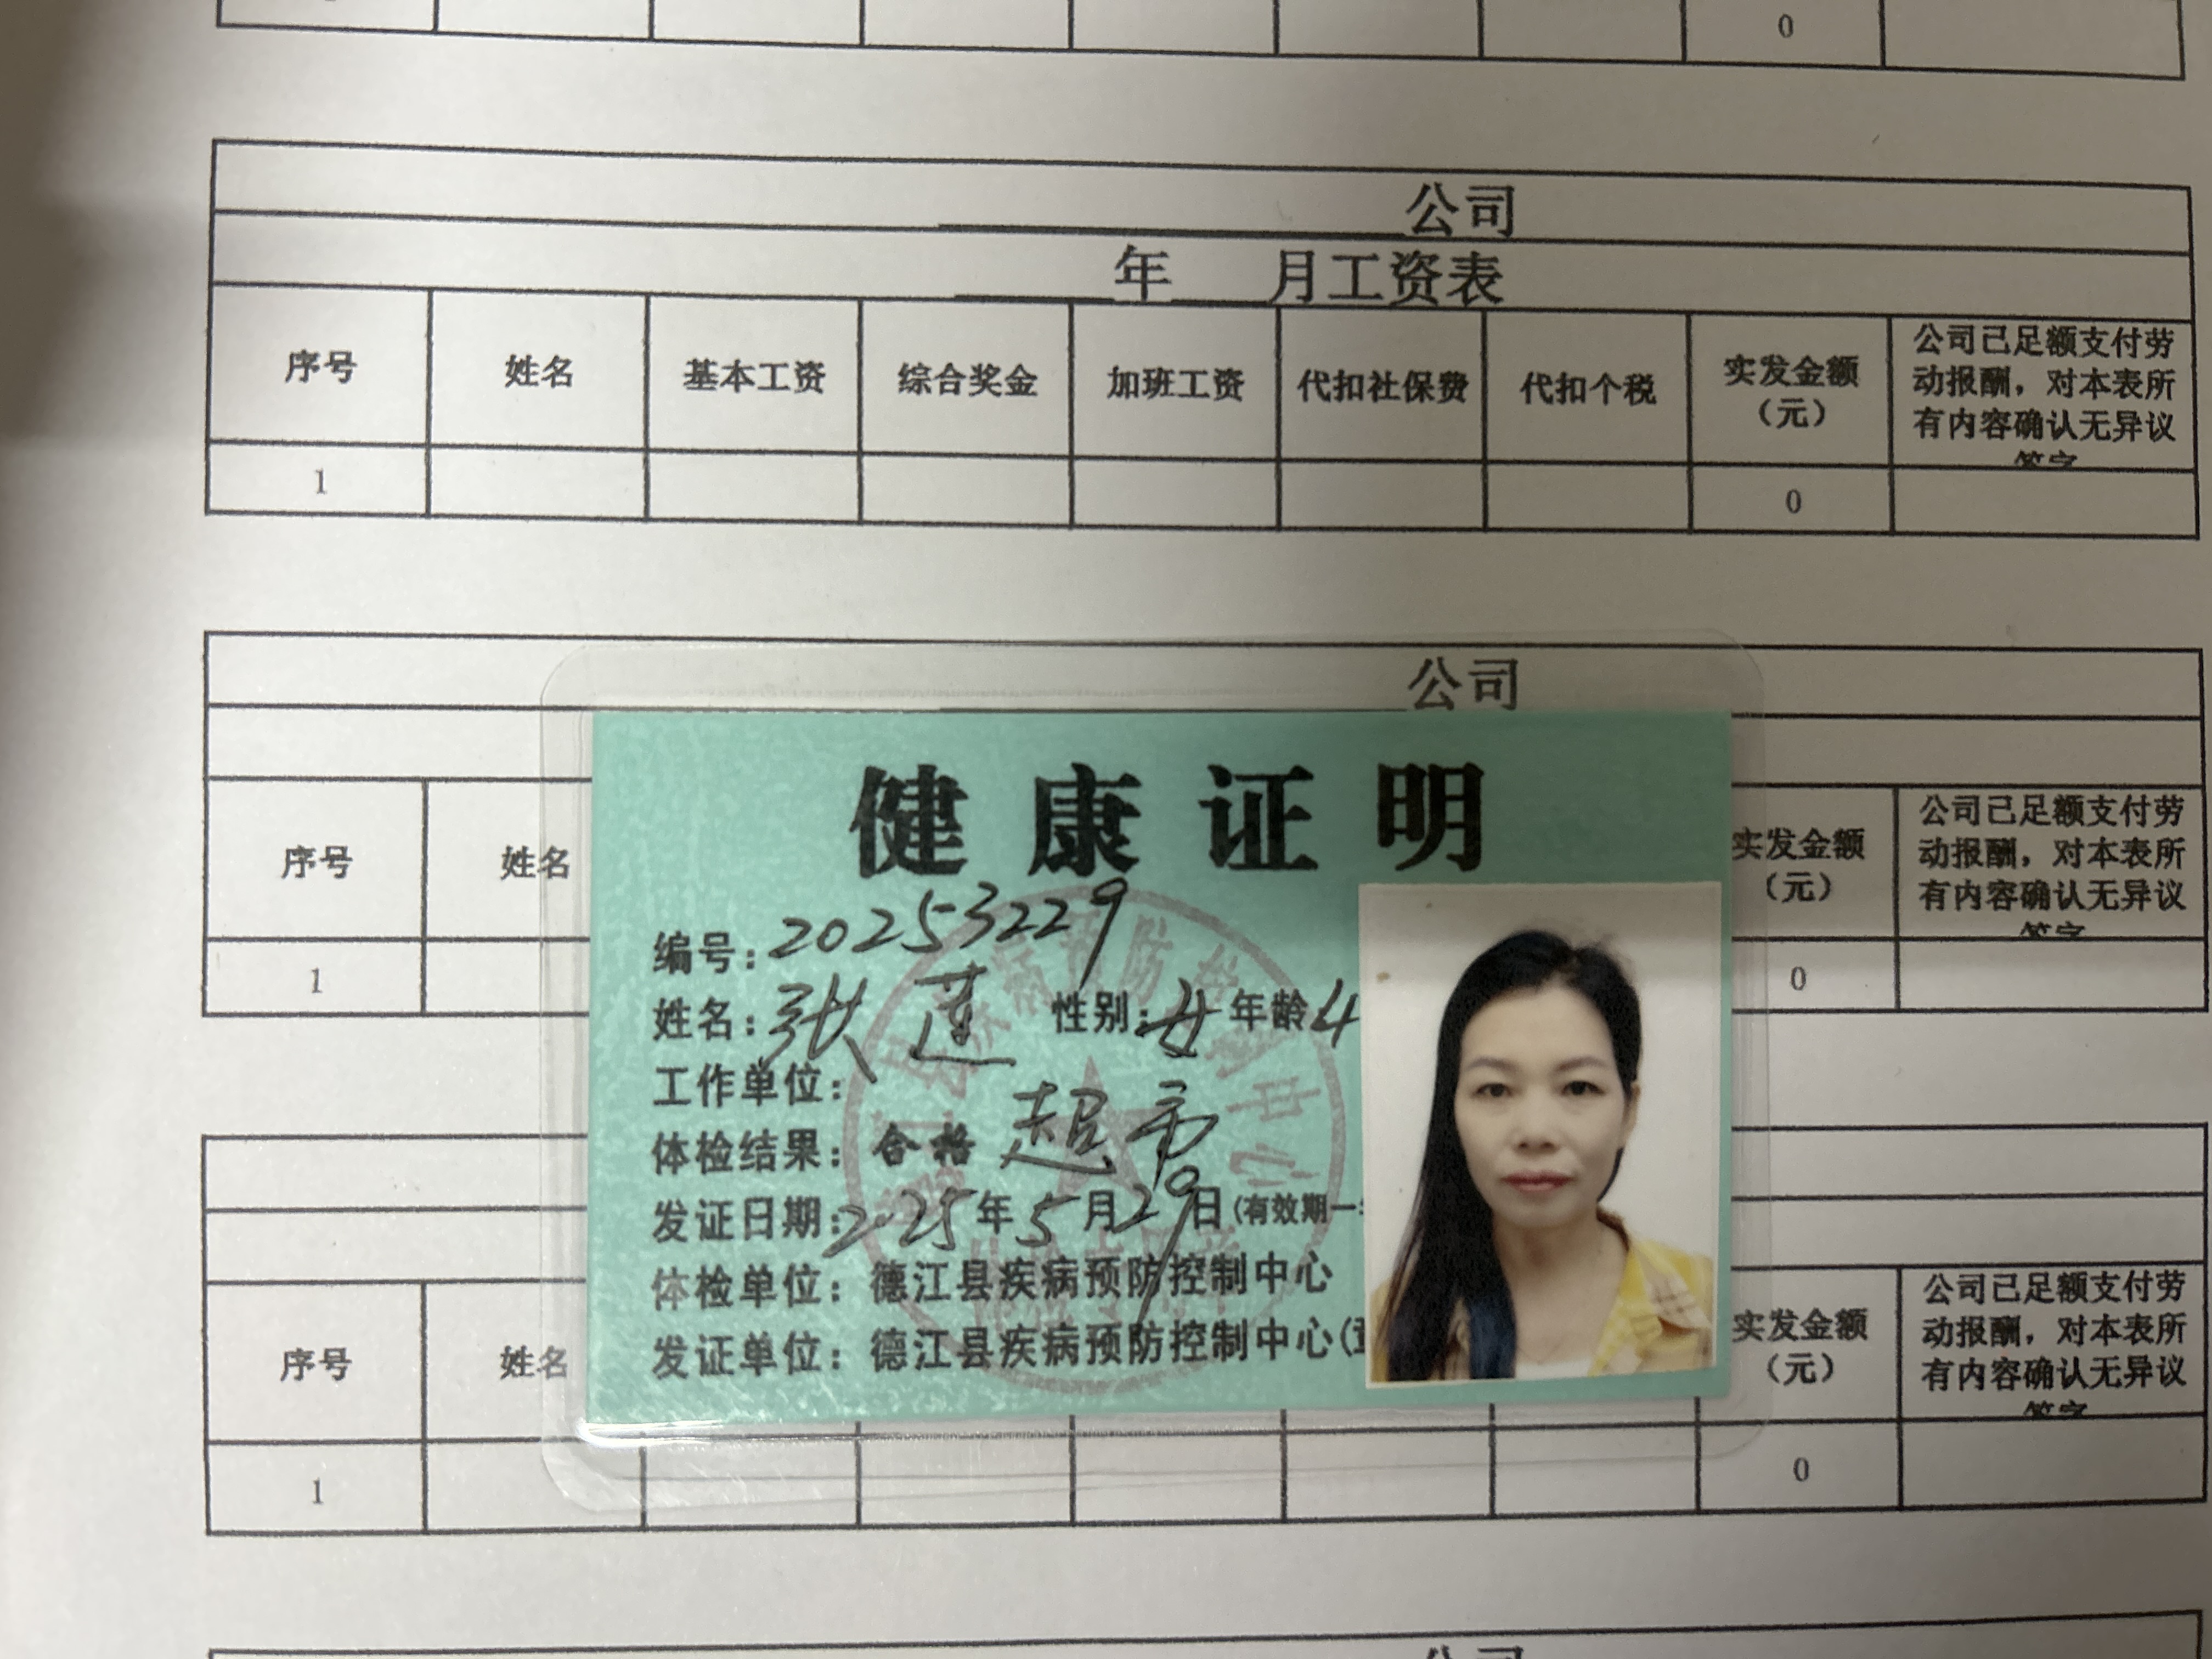 0
公司
年 月工资表
序号 姓名 基本工资 综合奖金 加班工资 代扣社保费 代扣个税 实发金额（元） 公司已足额支付劳动报酬，对本表所有内容确认无异议签字
1 0
公司
序号 姓名 实发金额（元） 公司已足额支付劳动报酬，对本表所有内容确认无异议签字
1 0
健康证明
编号：20253229
姓名：张莲 性别：女 年龄4
工作单位：
体检结果：合格 超市
发证日期：2025年5月29日(有效期一
体检单位：德江县疾病预防控制中心
发证单位：德江县疾病预防控制中心(
序号 姓名 实发金额（元） 公司已足额支付劳动报酬，对本表所有内容确认无异议签字
1 0
公司